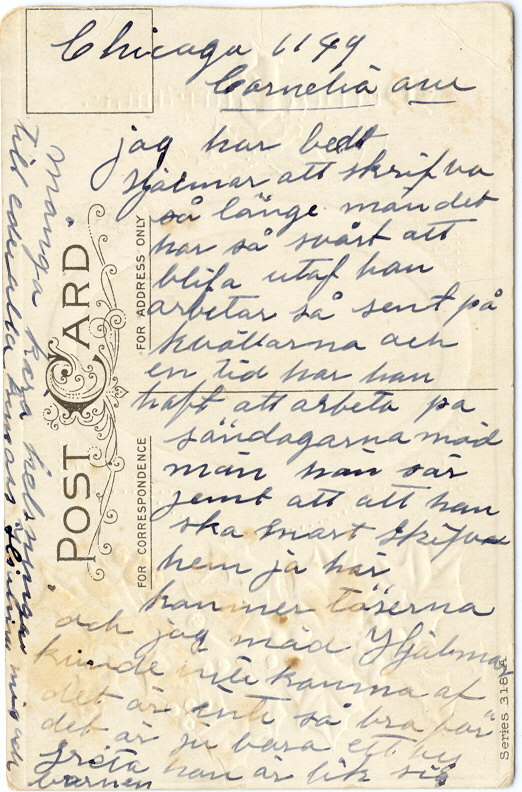 Chicago 1149
Cornelia ave
jag har bedt
Hjalmar att skrifva
så länge män det
har så svårt att
blifa utaf han
arbetar så sent på
kvällarna och
en tid har han
haft att arbeta på
söndagarna mäd
män han sär
jemt att att han
ska snart skrifva
hem ja här
kommer töserna
och jag mäd Hjalmar
kunde inte komma af
det är inte så bra för
det är ju bara ett
Greta han är lik sig
barnen
många kära helsningar
till edra alla
POST CARD
FOR ADDRESS ONLY
FOR CORRESPONDENCE
Series 318 A